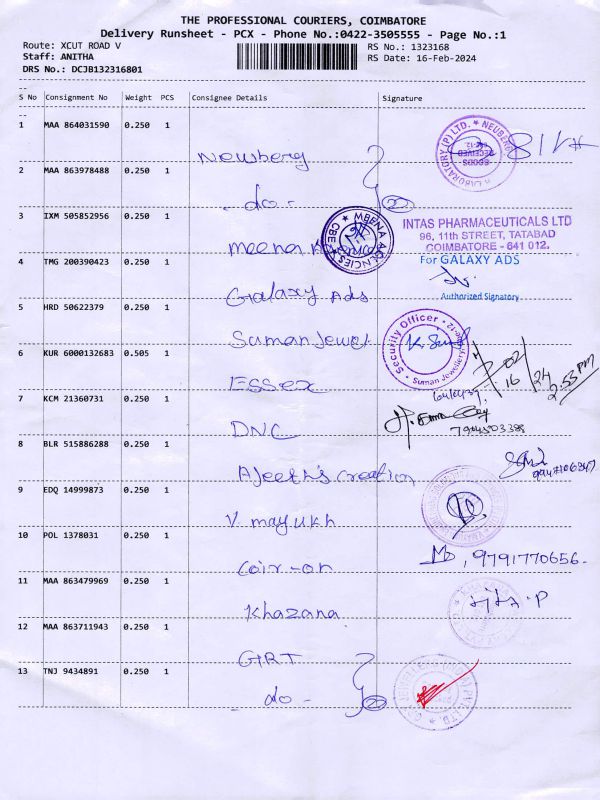 THE PROFESSIONAL COURIERS, COIMBATORE
Delivery Runsheet - PCX - Phone No.:0422-3505555 - Page No.:1
Route: XCUT ROAD V
Staff: ANITHA
DRS No.: DCJB132316801
RS No.: 1323168
RS Date: 16-Feb-2024
S No Consignment No Weight PCS Consignee Details Signature
1 MAA 864031590 0.250 1 Newberg
2 MAA 863978488 0.250 1 - do -
3 IXM 505852956 0.250 1 Meena
MEENA AGENCIES CBE
INTAS PHARMACEUTICALS LTD
96, 11th STREET, TATABAD
COIMBATORE - 641 012.
4 TMG 200390423 0.250 1 Galaxy Ads
For GALAXY ADS
Authorized Signatory
5 HRD 50622379 0.250 1 Suman Jewel
Security Officer
Suman Jewellery
6 KUR 6000132683 0.505 1 ESSEX
16/02/24
2.53 PM
7 KCM 21360731 0.250 1 DNC
8 BLR 515886288 0.250 1 Ajeeth's creation
9 EDQ 14999873 0.250 1 V. mayukh
10 POL 1378031 0.250 1 Coir-on
9791770656.
11 MAA 863479969 0.250 1 Khazana
12 MAA 863711943 0.250 1 GRT
13 TNJ 9434891 0.250 1 - do -